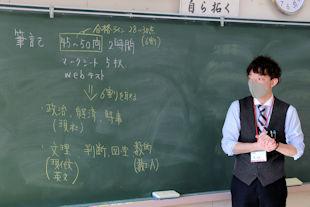 自ら拓く
筆記
合格ライン 28~30点
45~50問 2時間
(6割)
マークシート 5択
webテスト
⇓ 6割を取る
政治、経済、時事
(現社)
文理 判断、図形 数的
(現代文 英文) (数ⅠA)